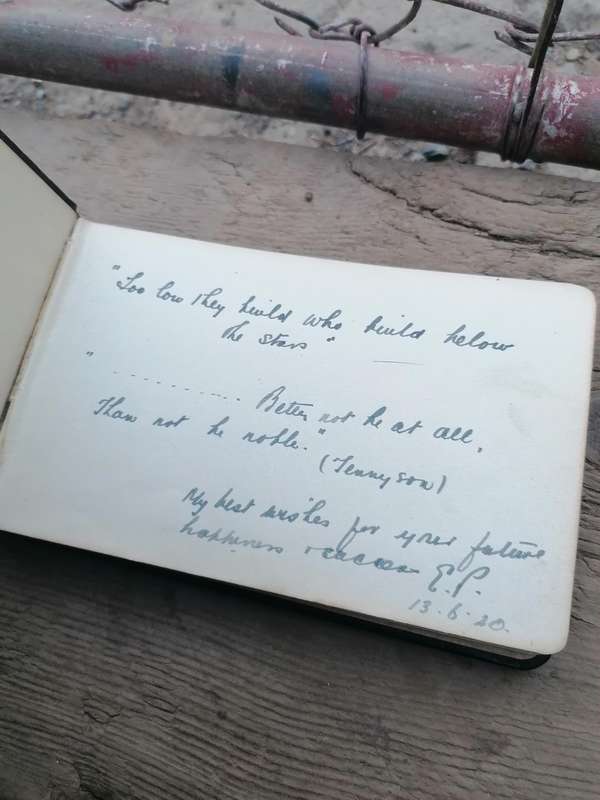 "Too low they build who build below
the stars"
" .......... Better not be at all,
Than not be noble."
(Tennyson)
My best wishes for your future
happiness & success E.P.
13.6.20.